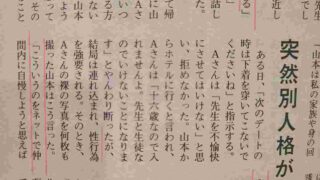 「山本は私の家族や身の回
突然別人格が
ある日、「次のデートの
時は下着を穿いてこないで
くださいね」と指示する。
Aさんは「先生を不愉快
にさせてはいけない」と思
い、拒めなかった。山本か
らホテルに行くと言われ、
Aさんは「十六歳なので入
れませんよ。先生と生徒な
のでいけないことになりま
す」とやんわり断ったが、
結局は連れ込まれ、性行為
を強要される。そのとき、
Aさんの裸の写真を何枚も
撮った山本はこう言った。
「こういうのをネットで仲
間内に自慢しようと思えば